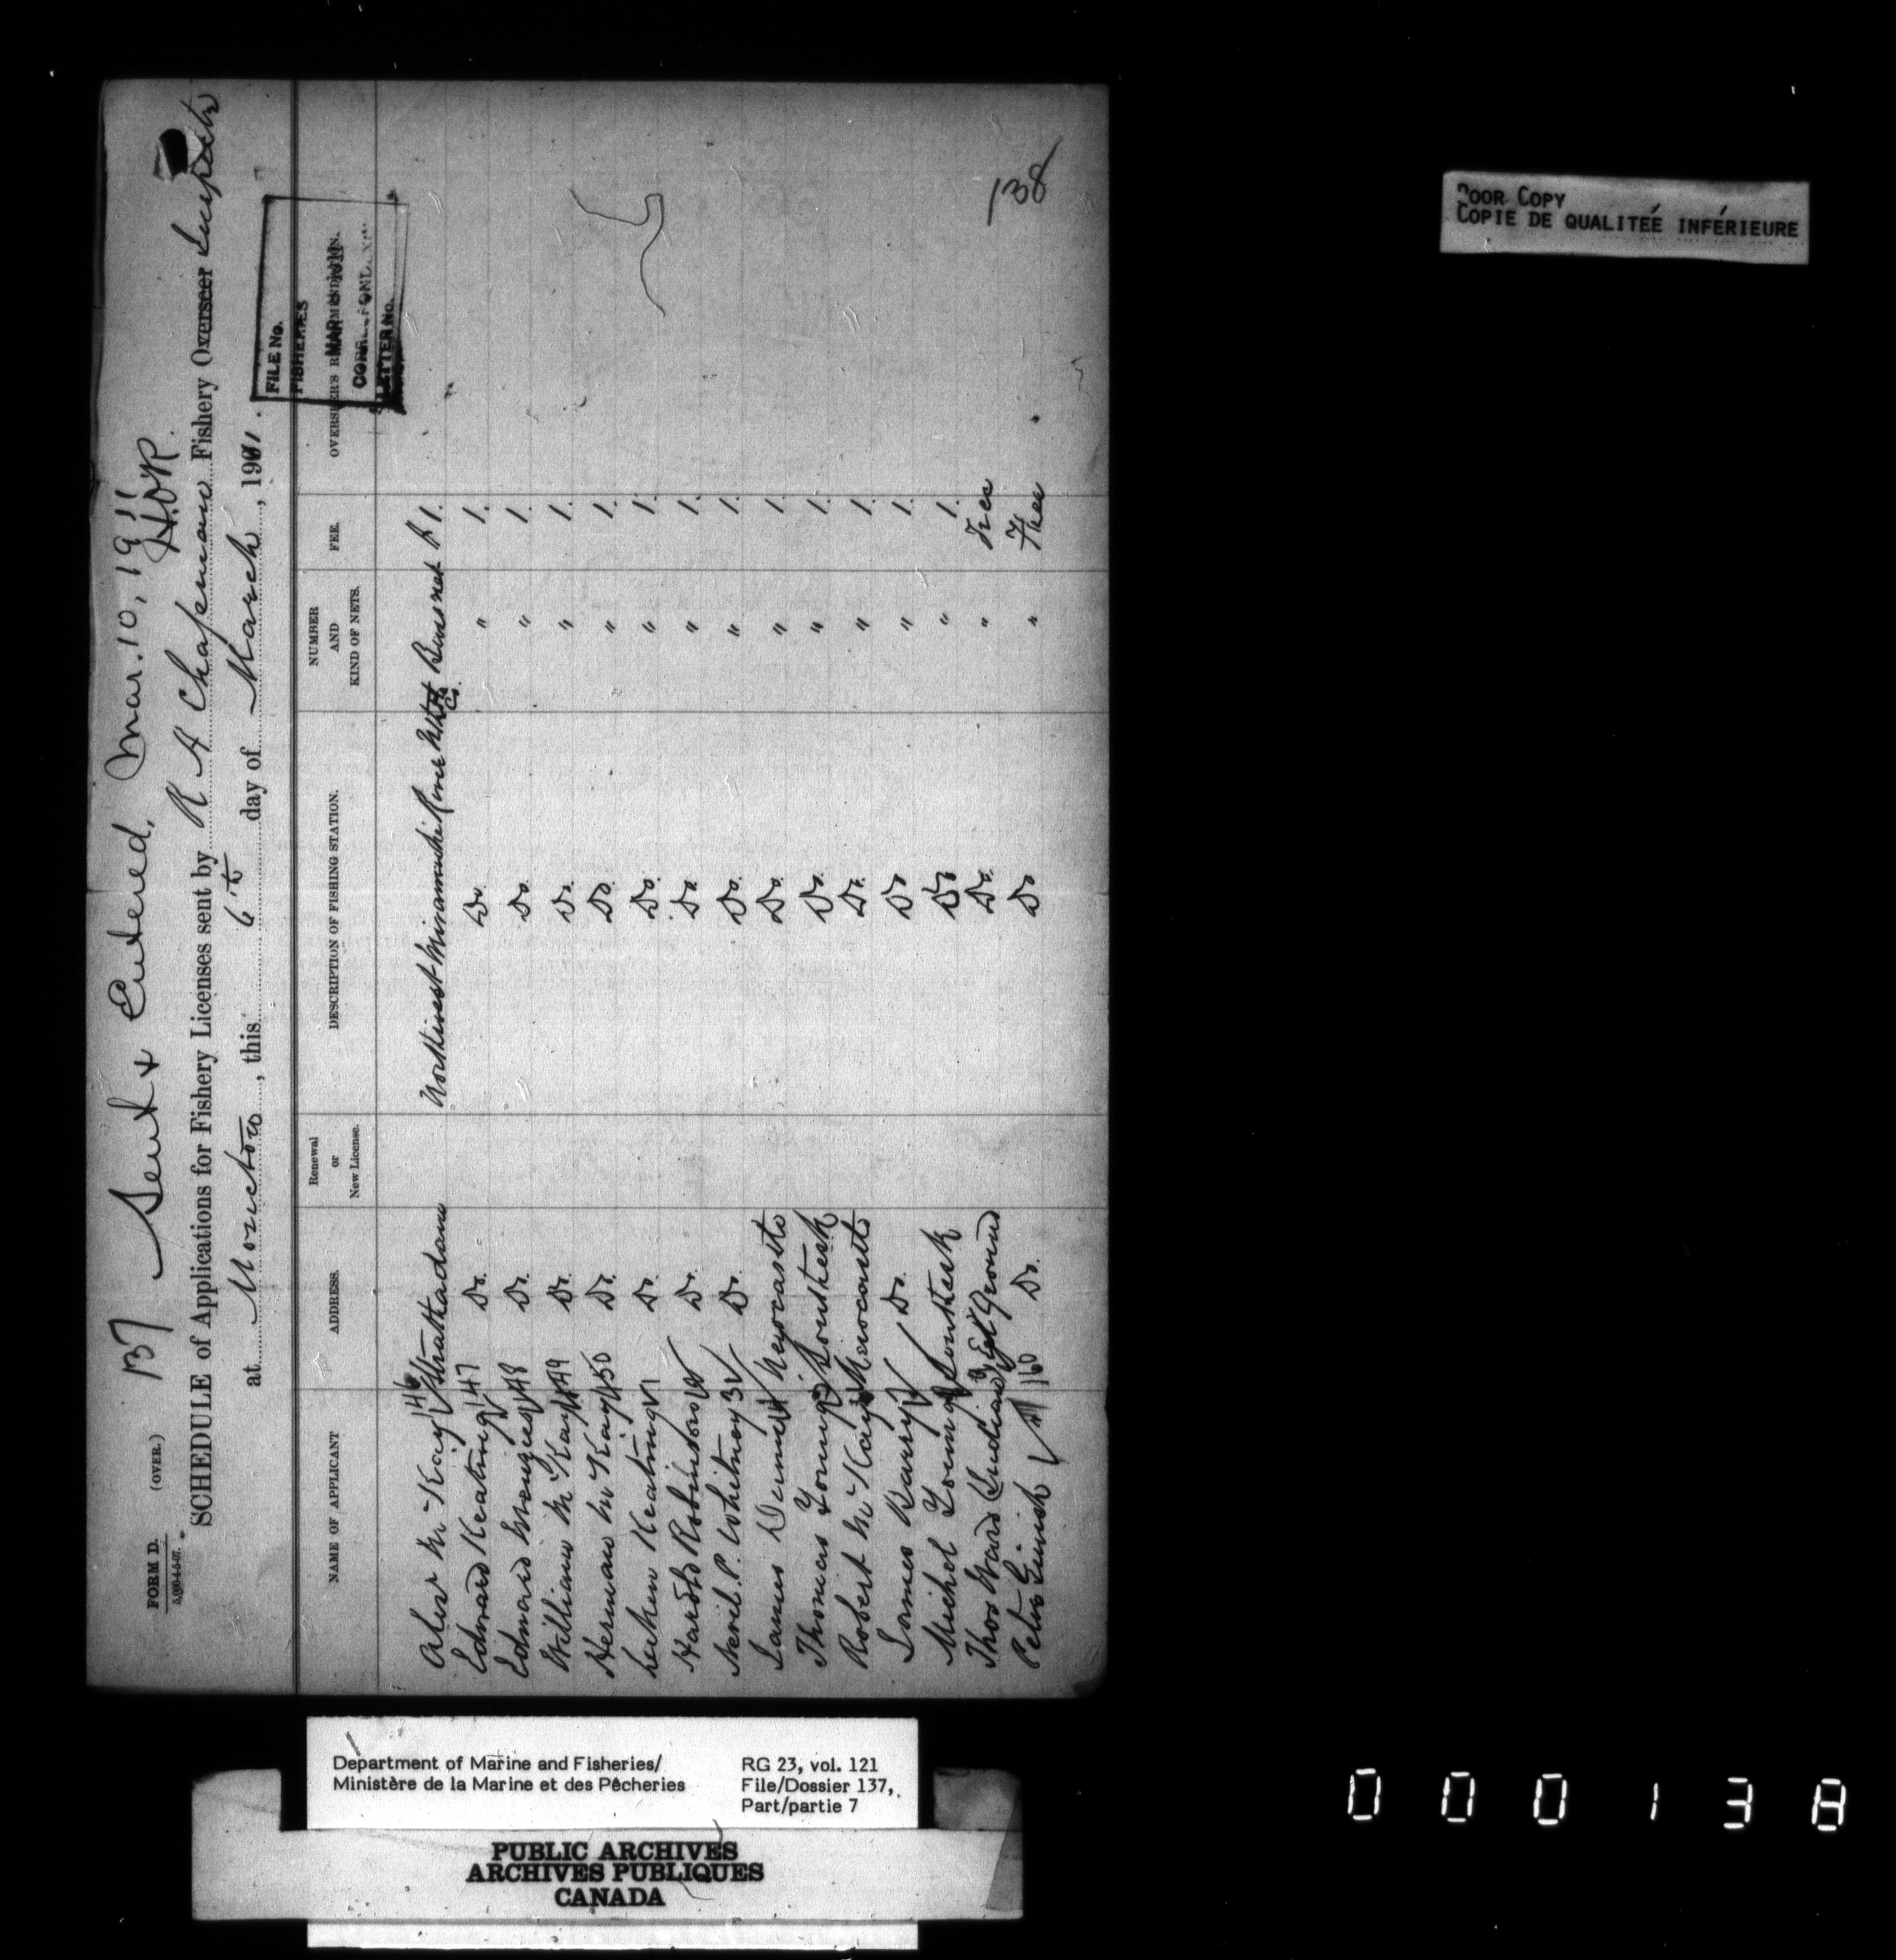 137 Sent & Entered, Mar. 10, 1911
H.O'R.
FORM D. (OVER.)
5,000-4-5-07.
SCHEDULE of Applications for Fishery Licenses sent by R A Chapman Fishery Overseer
at Moncton, this 6th day of March, 1911.
FILE No.
FISHERIES
LETTER No.
NAME OF APPLICANT ADDRESS. Renewal or New License. DESCRIPTION OF FISHING STATION. NUMBER AND KIND OF NETS. FEE. OVERSEER'S RECOMMENDATION.
Alex McKay 146 Strathadam Northwest Miramichi River Nthd Co. Bass net $ 1.
Edward Keating 147 Do. Do. " 1.
Edward Menzies 148 Do. Do. " 1.
William McKay 149 Do. Do. " 1.
Herman McKay 150 Do. Do. " 1.
Keating 1 Do. Do. " 1.
Robinson Do. Do. " 1.
P. Whitney 3 Do. Do. " 1.
James Do. " 1.
Thomas Young Southesk Do. " 1.
Robert McKay Do. " 1.
James Do. Do " 1.
Michel Young Southesk Do " 1.
Thos Ward (Indian) Eel Ground Do. " Free
160 Do. Do " Free "
138
POOR COPY
COPIE DE QUALITEÉ INFÉRIEURE
Department of Marine and Fisheries/
Ministère de la Marine et des Pêcheries
RG 23, vol. 121
File/Dossier 137,
Part/partie 7
PUBLIC ARCHIVES
ARCHIVES PUBLIQUES
CANADA
000138